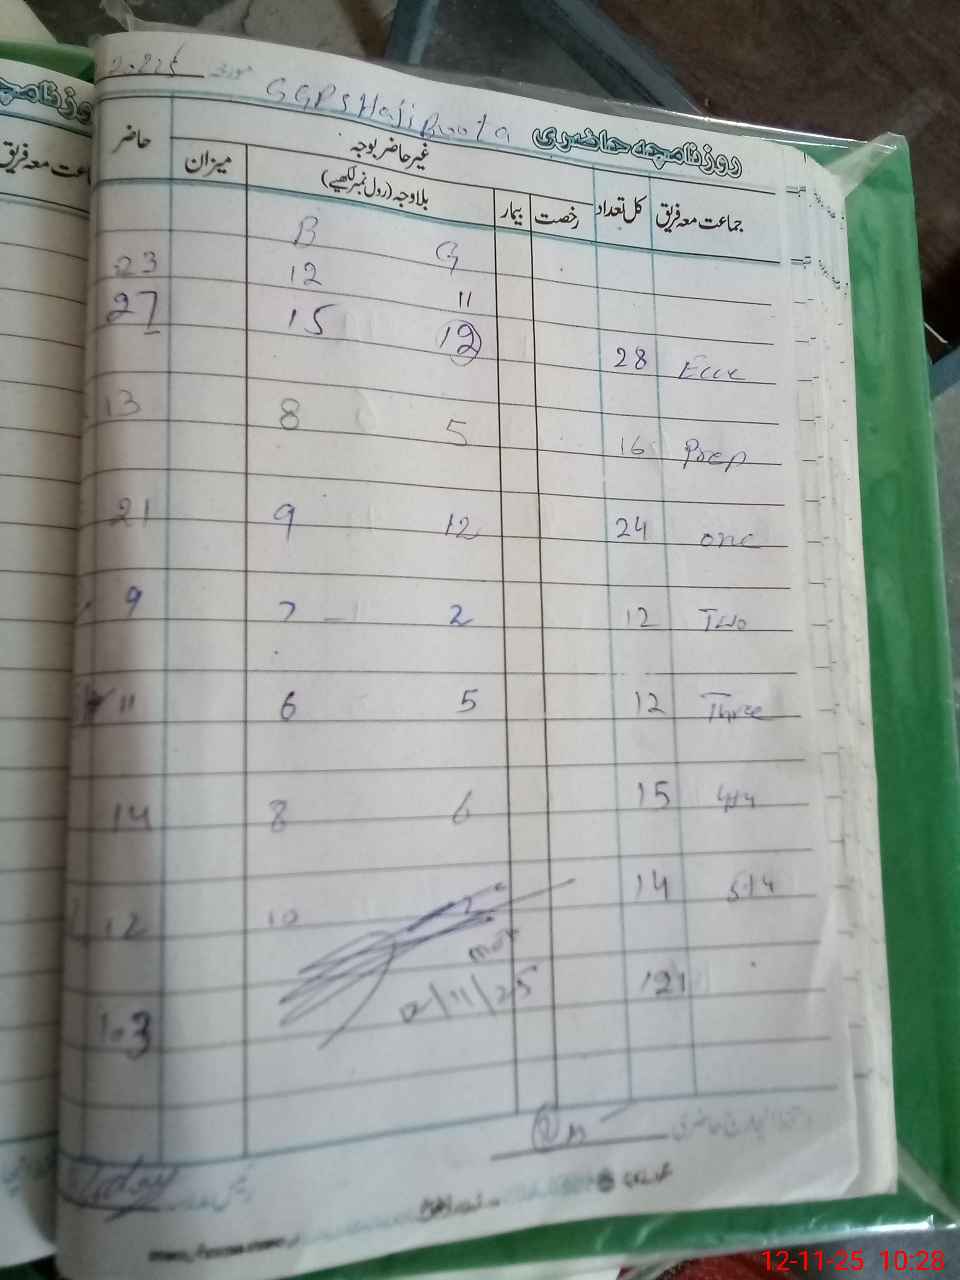 GGPS Haji Boota
مورخہ
روزنامچہ حاضری
جماعت معہ فریق کل تعداد غیر حاضر بوجہ حاضر
رخصت بیمار بلاوجہ (رول نمبر لکھیے) میزان
B G
23 12 11
27 15 12 28 Ecce
13 8 5 16 Prep
21 9 12 24 one
9 7 2 12 Two
11 6 5 12 Three
14 8 6 15 4th
12 10 2 14 5th
103 121
/11/25
حاضری
12-11-25 10:28